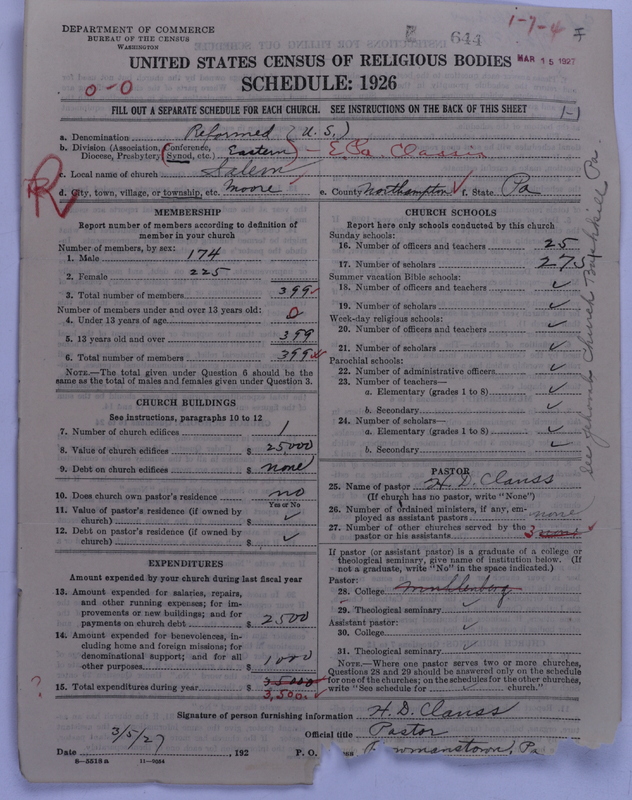 DEPARTMENT OF COMMERCE
BUREAU OF THE CENSUS
WASHINGTON
644
1-7-4
MAR 15 1927
UNITED STATES CENSUS OF RELIGIOUS BODIES
SCHEDULE: 1926
0-0
FILL OUT A SEPARATE SCHEDULE FOR EACH CHURCH. SEE INSTRUCTIONS ON THE BACK OF THIS SHEET
1-1
a. Denomination Reformed (U.S.)
b. Division (Association, Conference, Diocese, Presbytery, Synod, etc.) Eastern - E. Pa. Classis
c. Local name of church Salem
d. City, town, village, or township, etc. Moore e. County Northampton f. State Pa
R
MEMBERSHIP
Report number of members according to definition of
member in your church
Number of members, by sex:
1. Male 174
2. Female 225
3. Total number of members 399
Number of members under and over 13 years old:
4. Under 13 years of age 0
5. 13 years old and over 399
6. Total number of members 399
NOTE.—The total given under Question 6 should be
same as the total of males and females given under Question 3.
CHURCH BUILDINGS
See instructions, paragraphs 10 to 12
7. Number of church edifices 1
8. Value of church edifices $ 25000
9. Debt on church edifices $ none
10. Does church own pastor's residence no
Yes or No
11. Value of pastor's residence (if owned by
church) $ ✓
12. Debt on pastor's residence (if owned by
church) $ ✓
EXPENDITURES
Amount expended by your church during last fiscal year
13. Amount expended for salaries, repairs,
and other running expenses; for im-
provements or new buildings; and for
payments on church debt $ 2500
14. Amount expended for benevolences, in-
cluding home and foreign missions; for
denominational support; and for all
other purposes $ 1000
? 15. Total expenditures during year $ 35000
3,500.
CHURCH SCHOOLS
Report here only schools conducted by this church
Sunday schools:
16. Number of officers and teachers 25
17. Number of scholars 275
Summer vacation Bible schools:
18. Number of officers and teachers ✓
19. Number of scholars ✓
Week-day religious schools:
20. Number of officers and teachers ✓
21. Number of scholars ✓
Parochial schools:
22. Number of administrative officers ✓
23. Number of teachers—
a. Elementary (grades 1 to 8) ✓
b. Secondary ✓
24. Number of scholars—
a. Elementary (grades 1 to 8) ✓
b. Secondary ✓
PASTOR
25. Name of pastor H. D. Clauss
(If church has no pastor, write "None")
26. Number of ordained ministers, if any, em-
ployed as assistant pastors none
27. Number of other churches served by the
pastor or his assistants 3
If pastor (or assistant pastor) is a graduate of a college or
theological seminary, give name of institution below. (If
not a graduate, write "No" in the space indicated.)
Pastor:
28. College Muhlenberg
29. Theological seminary ✓
Assistant pastor:
30. College ✓
31. Theological seminary ✓
NOTE.—Where one pastor serves two or more churches,
Questions 28 and 29 should be answered only on the schedule
for one of the churches; on the schedules for the other churches,
write "See schedule for church."
Signature of person furnishing information H. D. Clauss
Official title Pastor
Date 3/5/27, 192 P. O.
8-5518a 11-9054